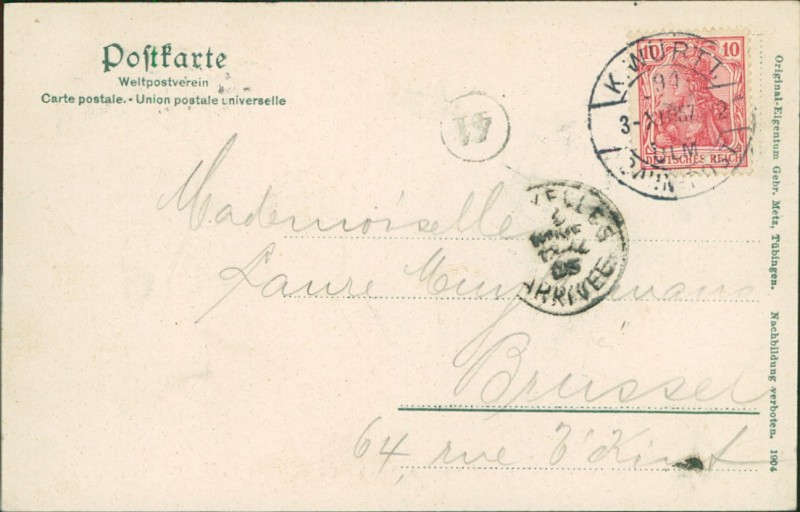 Postkarte
Weltpostverein
Carte postale. - Union postale universelle
41
10
DEUTSCHES REICH
K. WÜRTT.
3-XI
2
ULM
XELLES
05
ARRIVEE
Mademoiselle
Laure
Brüssel
64, rue T'Kint
Original-Eigentum Gebr. Metz, Tübingen. Nachbildung verboten. 1904